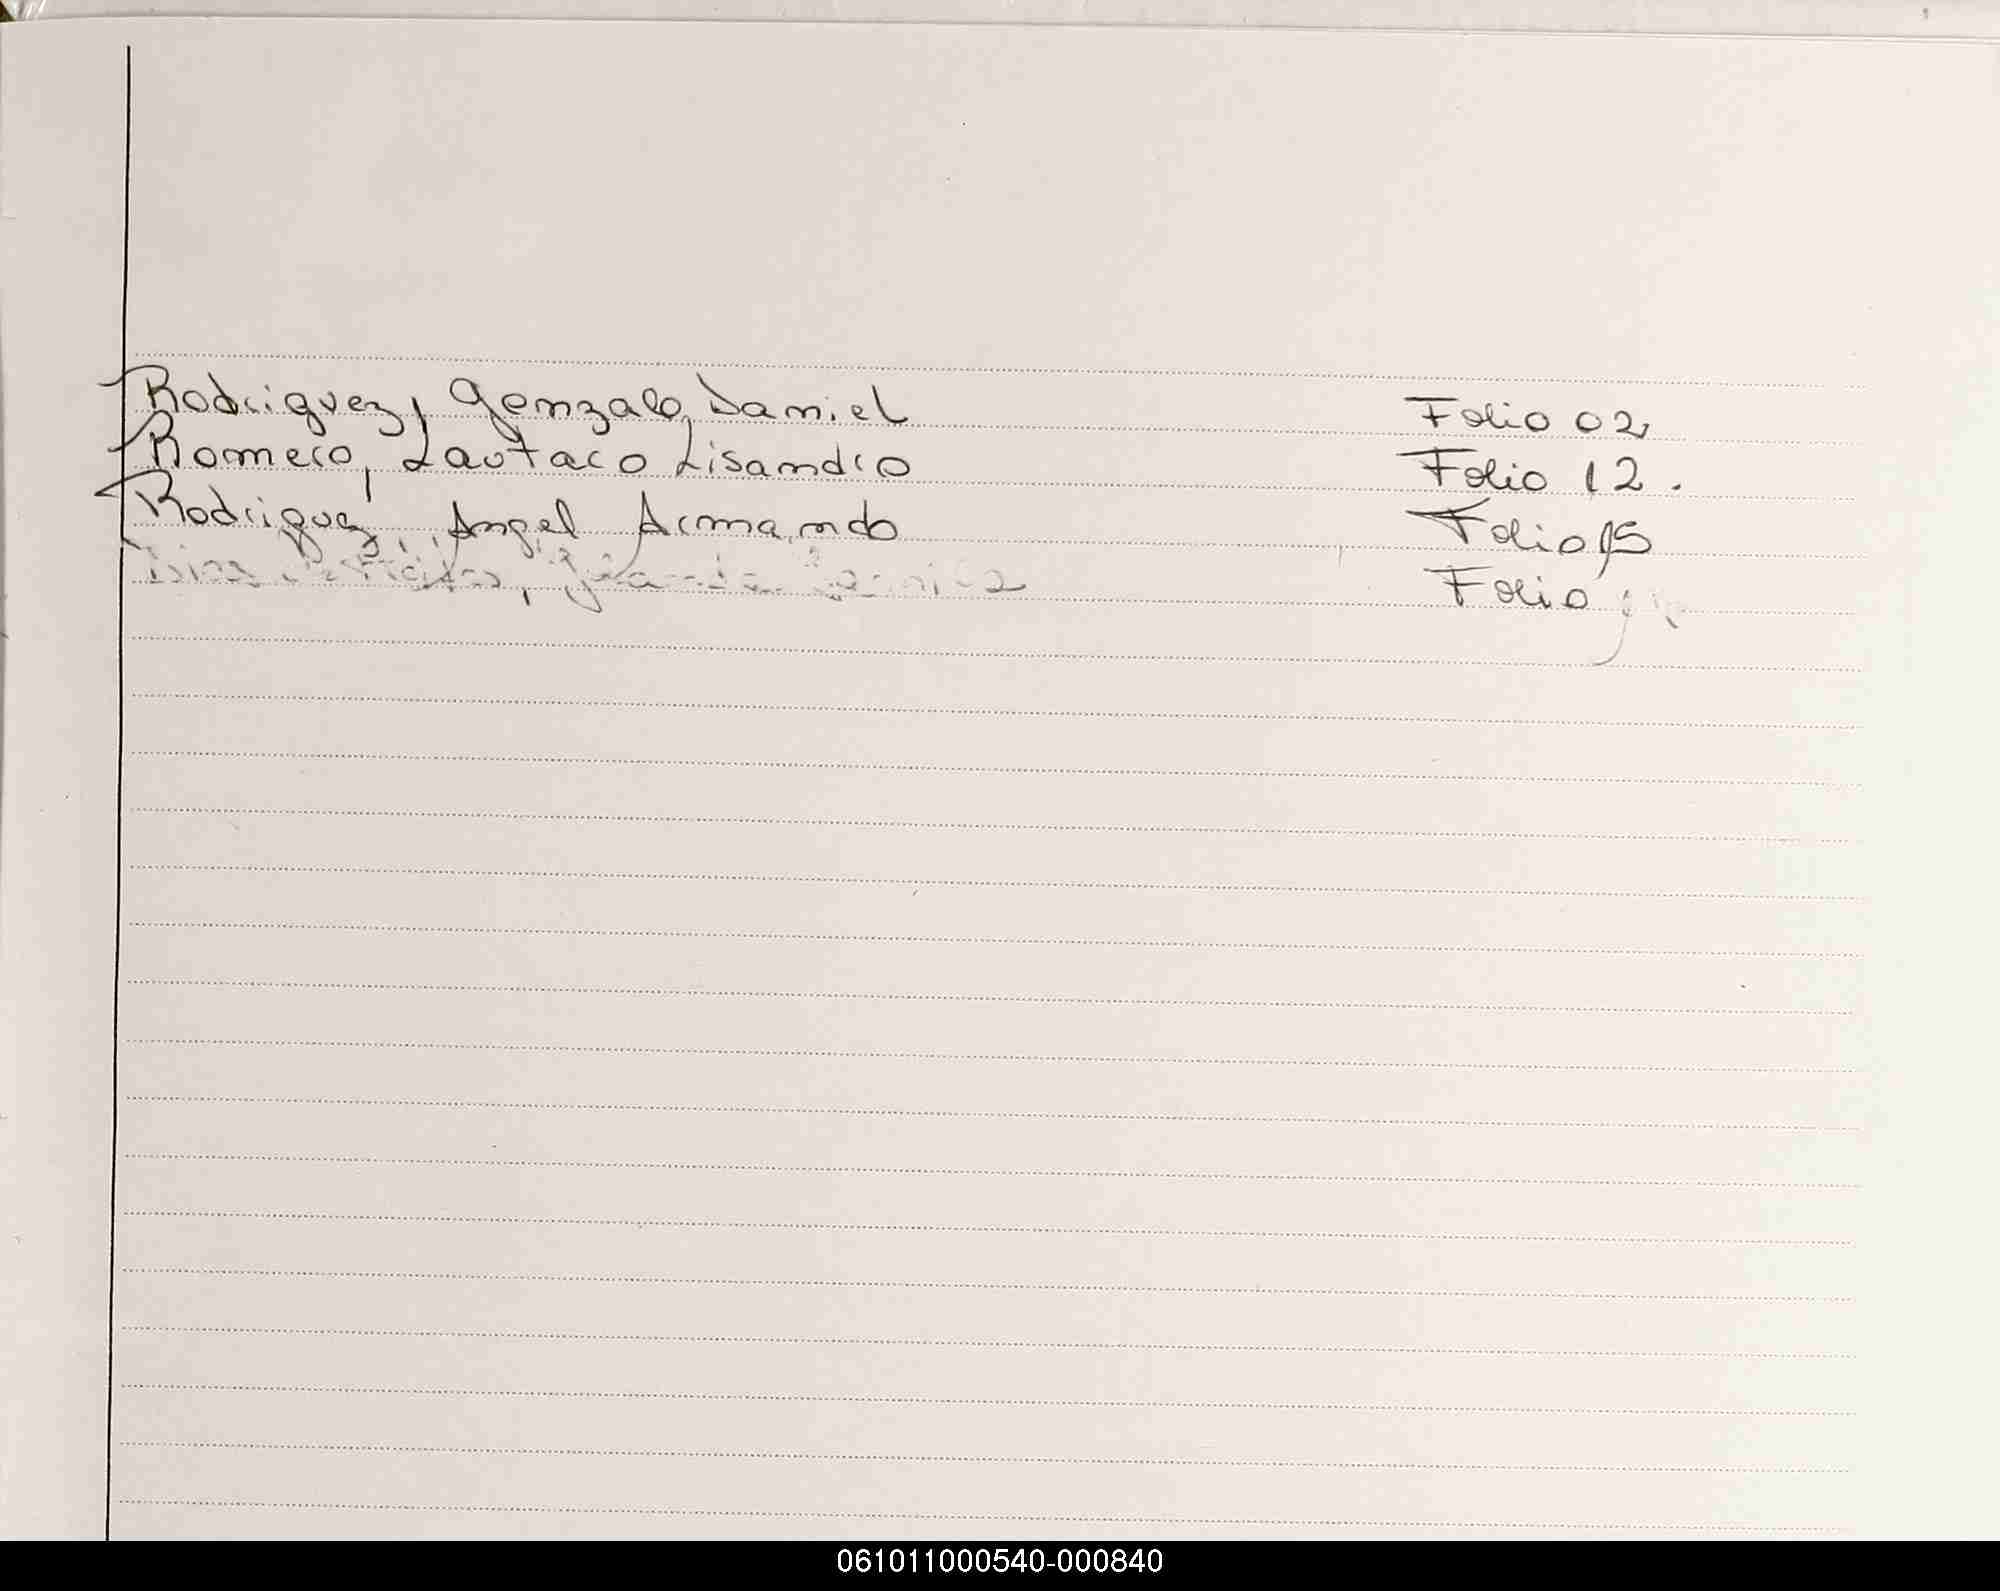 Rodriguez, Gonzalo Daniel Folio 02
Romero, Lautaro Lisandro Folio 12.
Rodriguez, Angel Armando Folio 15
Folio
061011000540-000840